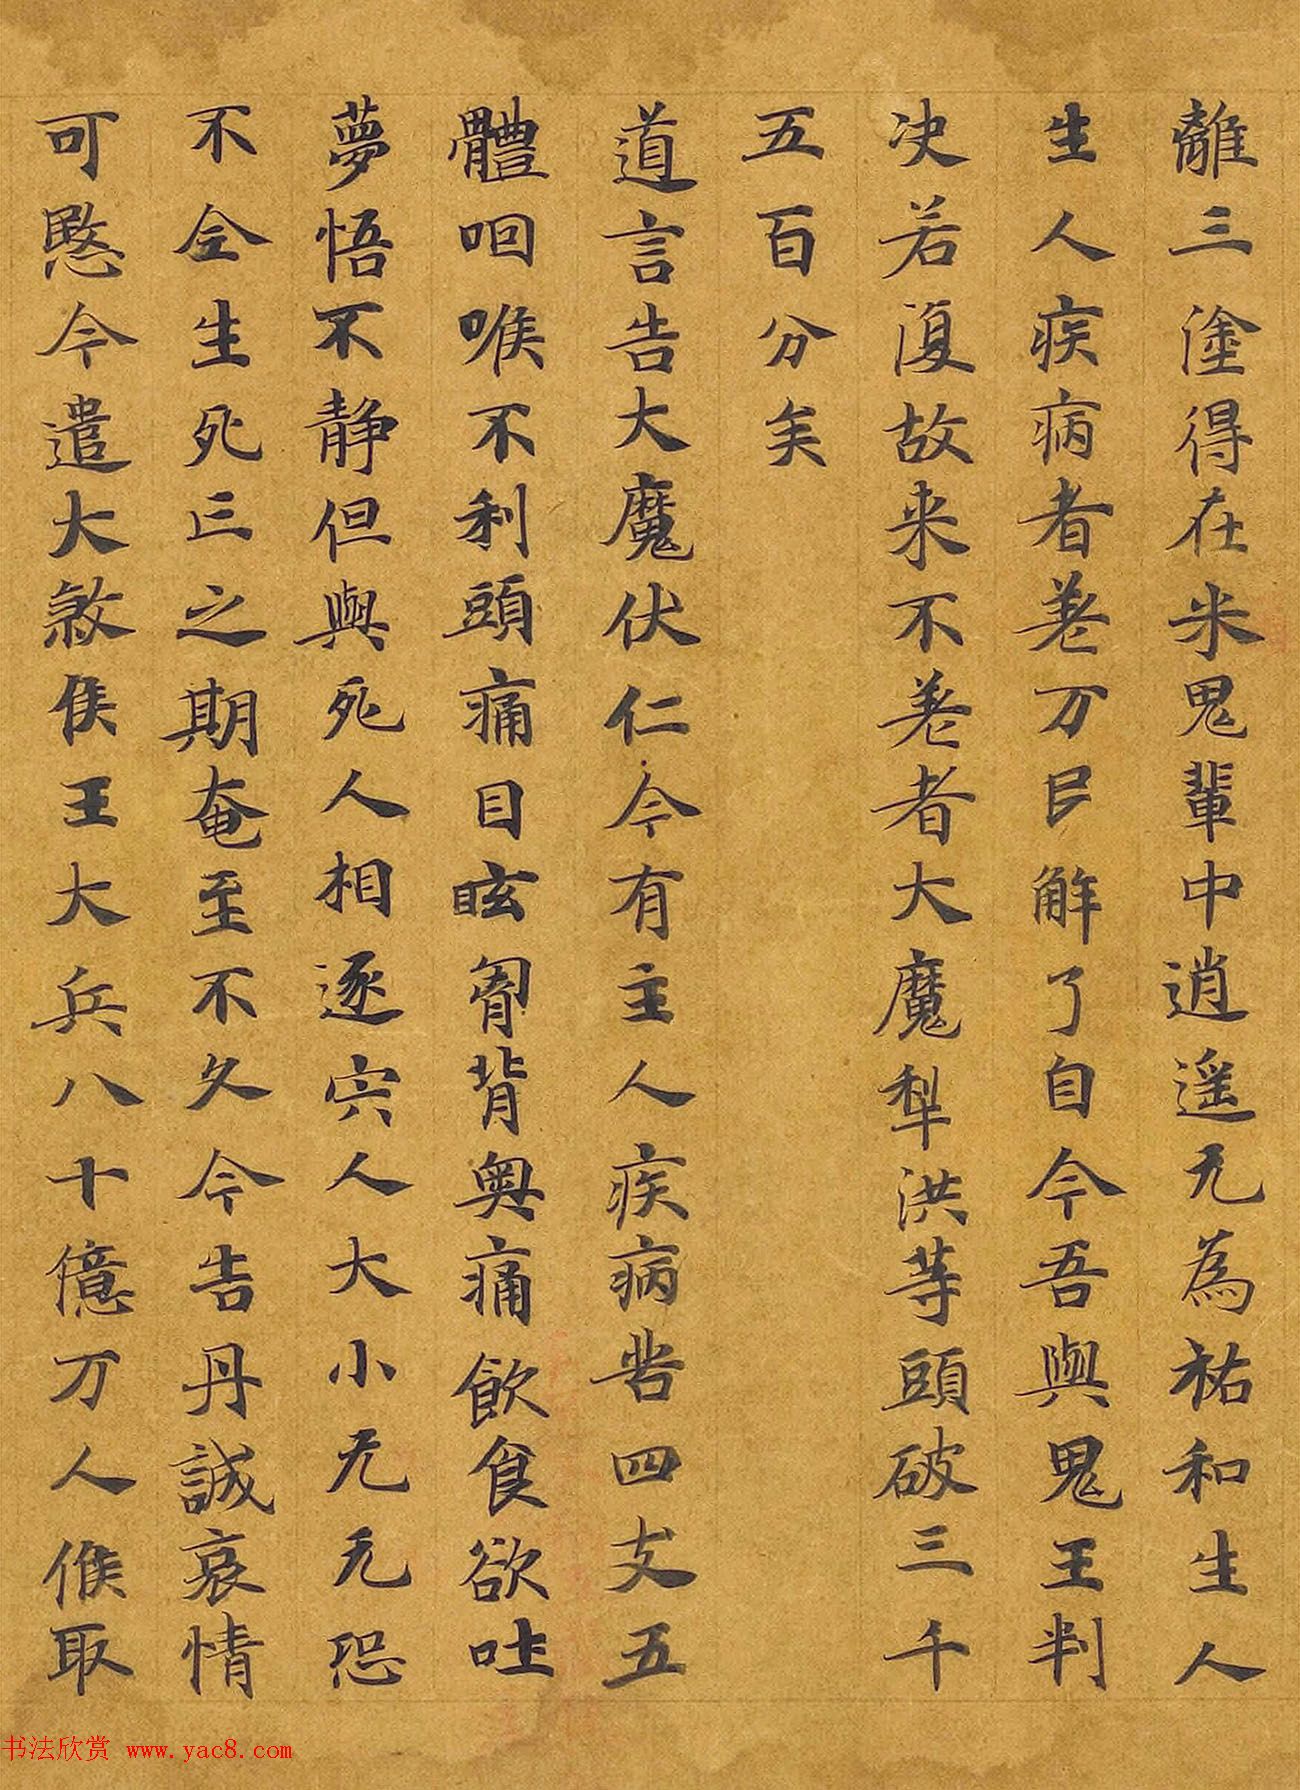 離三塗得在米鬼輩中逍遥无為祐和生人
生人疾病者差万民解了自今吾與鬼王判
决若復故来不差者大魔犁洪等頭破三千
五百分矣
道言告大魔伏仁今有主人疾病苦四支五
體咽喉不利頭痛目眩胷背奥痛飲食欲吐
夢悟不静但與死人相逐宍人大小无无恐
不全生死亡之期奄至不久今告丹誠哀情
可愍今遣大煞侯王大兵八十億万人收取
书法欣赏 www.yac8.com